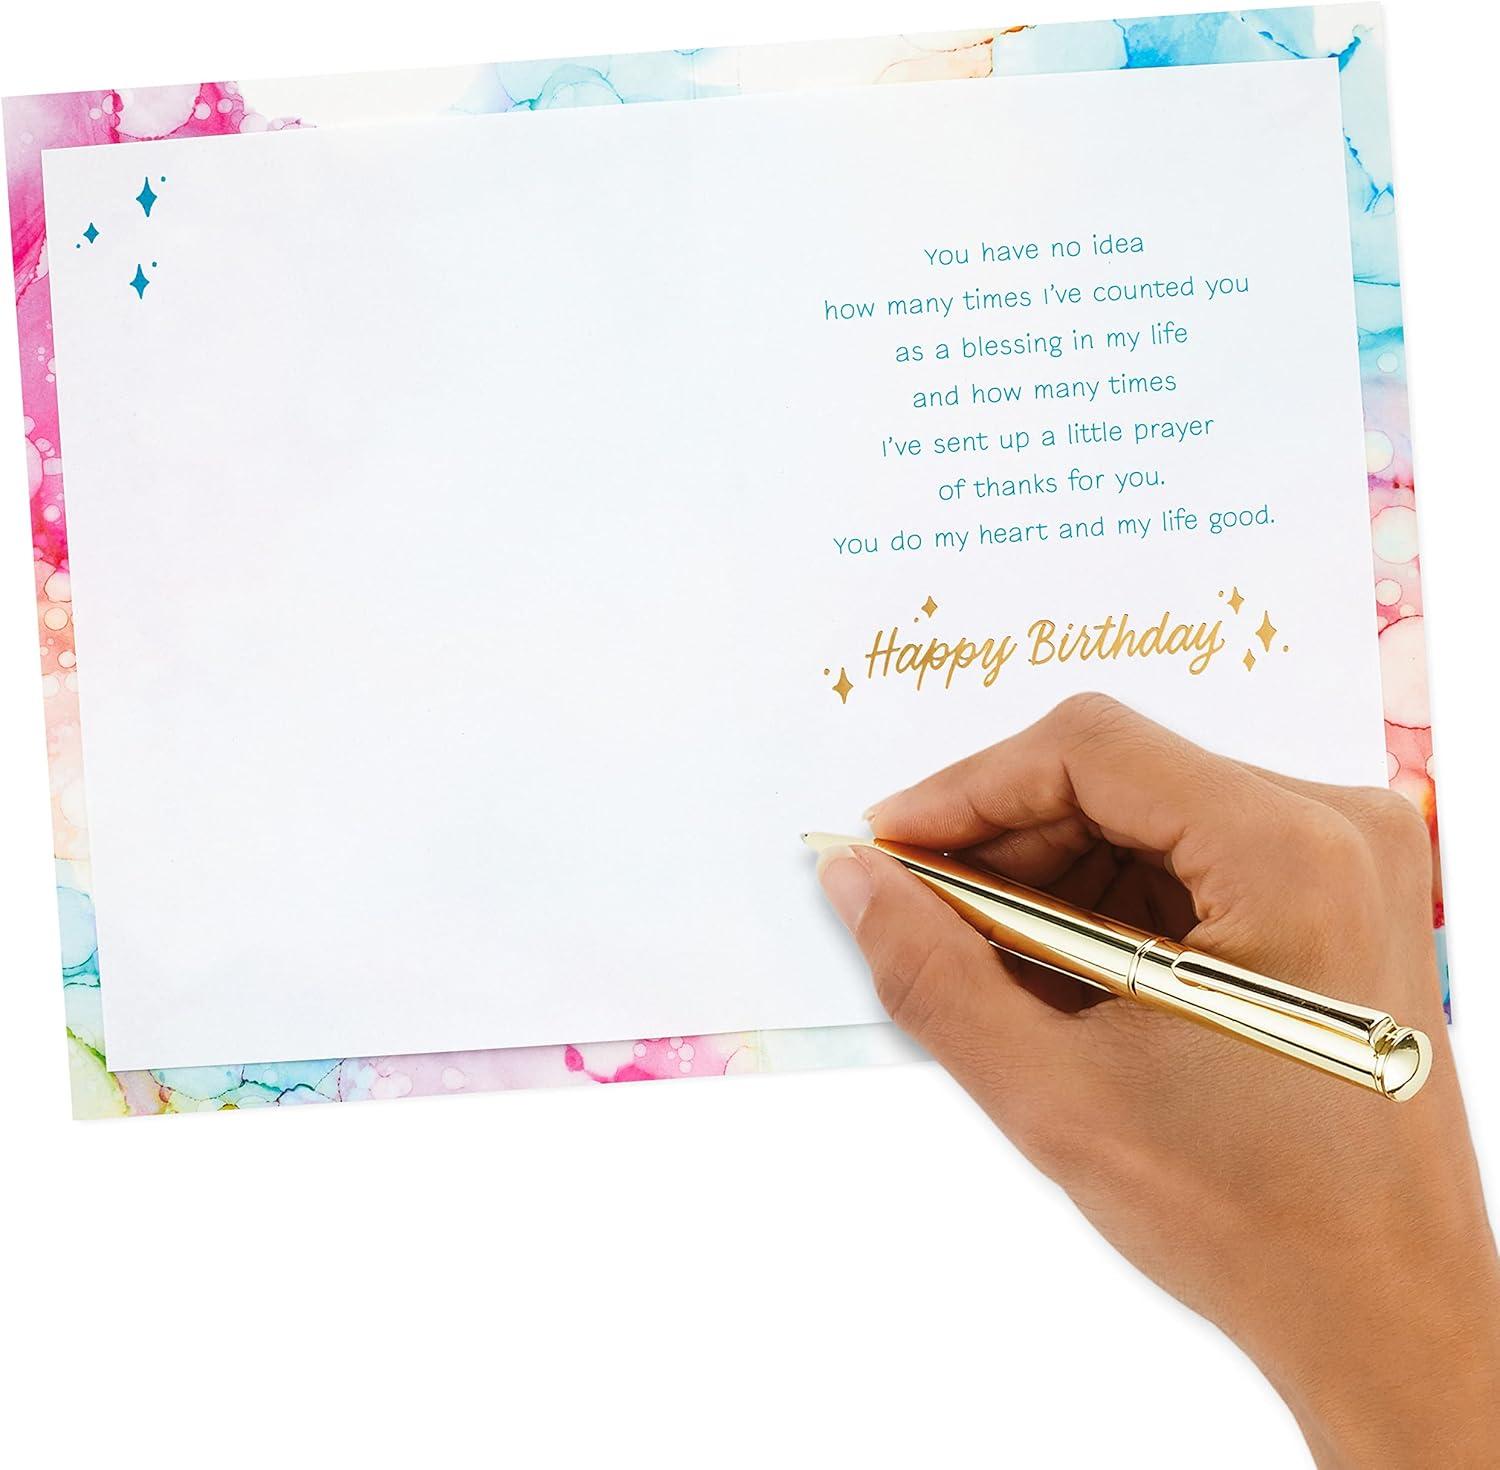 You have no idea
how many times I've counted you
as a blessing in my life
and how many times
I've sent up a little prayer
of thanks for you.
You do my heart and my life good.
Happy Birthday